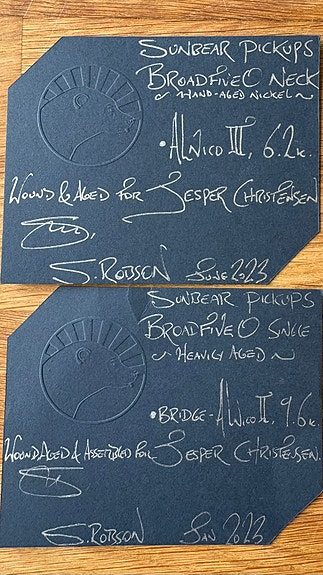 SUNBEAR PICKUPS
BROADFIVE O NECK
~ HAND-AGED NICKEL ~
• ALNICO III, 6.2K.
WOUND & AGED FOR JESPER CHRISTENSEN
S. ROBSON JUNE 2023
SUNBEAR PICKUPS
BROADFIVE O SINGLE
~ HEAVILY AGED ~
• BRIDGE - ALNICO II, 9.6K.
WOUND AGED & ASSEMBLED FOR JESPER CHRISTENSEN.
S. ROBSON JAN 2023